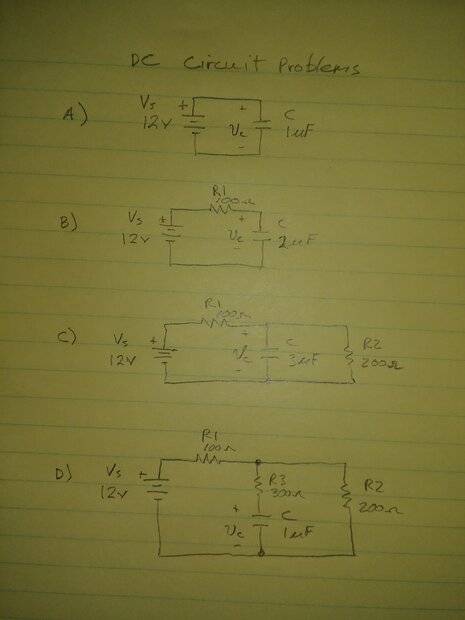 DC Circuit Problems
A) Vs + + C
12v Vc 1uF
-
R1
B) Vs + + C
12v Vc 2uF
-
R1
100Ω
C) Vs + + C R2
12v Vc 3uF 200Ω
-
R1
100Ω
D) Vs + R3 R2
12v 300Ω 200Ω
+ C
Vc 1uF
-